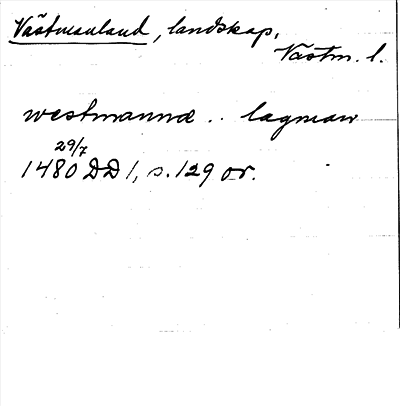 Västmanland, landskap,
Västm. l.
westmannd .. lagman
29/7
1480 DD 1, s. 129 or.